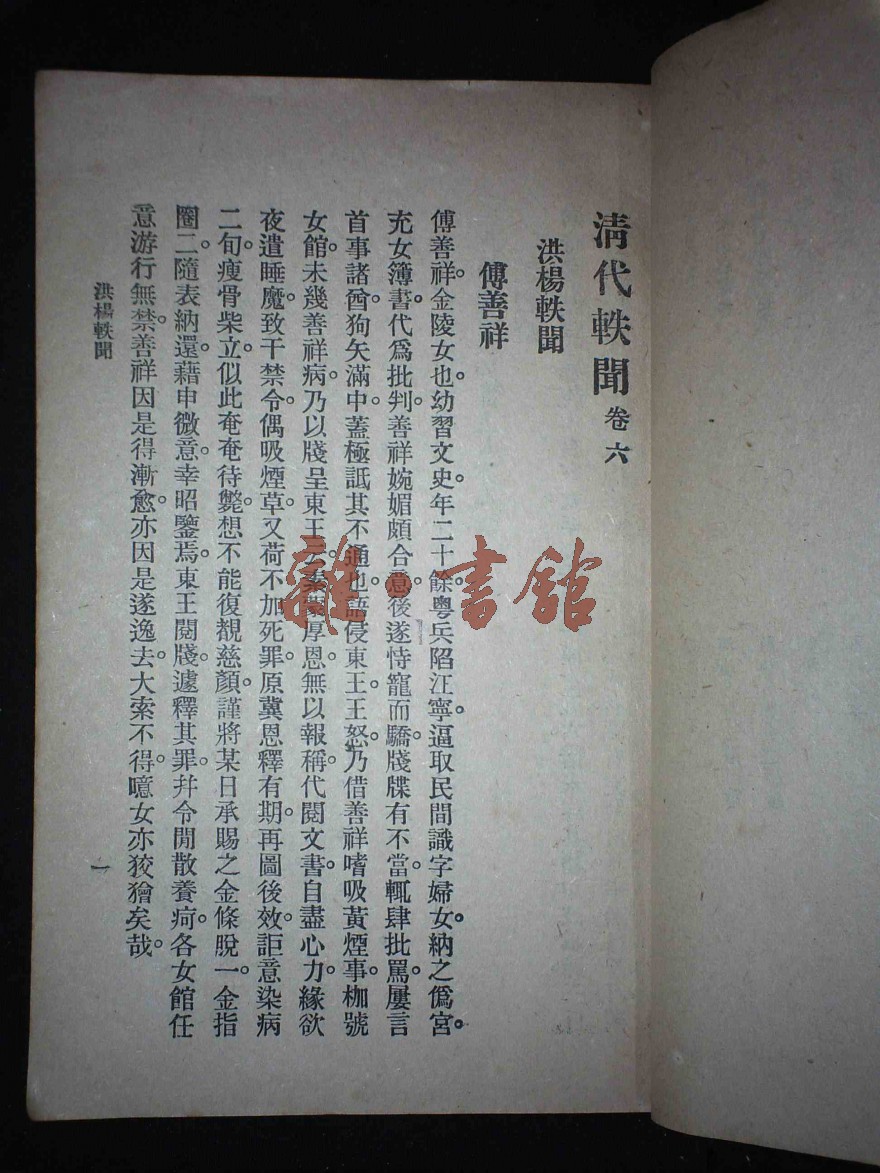 清代軼聞 卷六
洪楊軼聞
傅善祥
傅善祥。金陵女也。幼習文史。年二十餘。粵兵陷江寧。逼取民間識字婦女。納之僞宮。
充女簿書。代爲批判。善祥婉媚頗合意。後遂恃寵而驕。牋牒有不當。輒肆批罵。屢言
首事諸酋狗矢滿中。蓋極詆其不通也。語侵東王。王怒。乃借善祥嗜吸黃煙事。枷號
女館。未幾善祥病。乃以牋呈東王云。素蒙厚恩。無以報稱。代閱文書。自盡心力。緣欲
夜遣睡魔。致干禁令。偶吸煙草。又荷不加死罪。原冀恩釋有期。再圖後效。詎意染病
二旬。瘦骨柴立。似此奄奄待斃。想不能復覩慈顏。謹將某日承賜之金條脫一。金指
圈二。隨表納還。藉申微意。幸昭鑒焉。東王閱牋。遽釋其罪。幷令閒散養疴。各女館任
意游行無禁。善祥因是得漸愈。亦因是遂逸去。大索不得。噫女亦狡獪矣哉。
洪楊軼聞
一
雜·書館